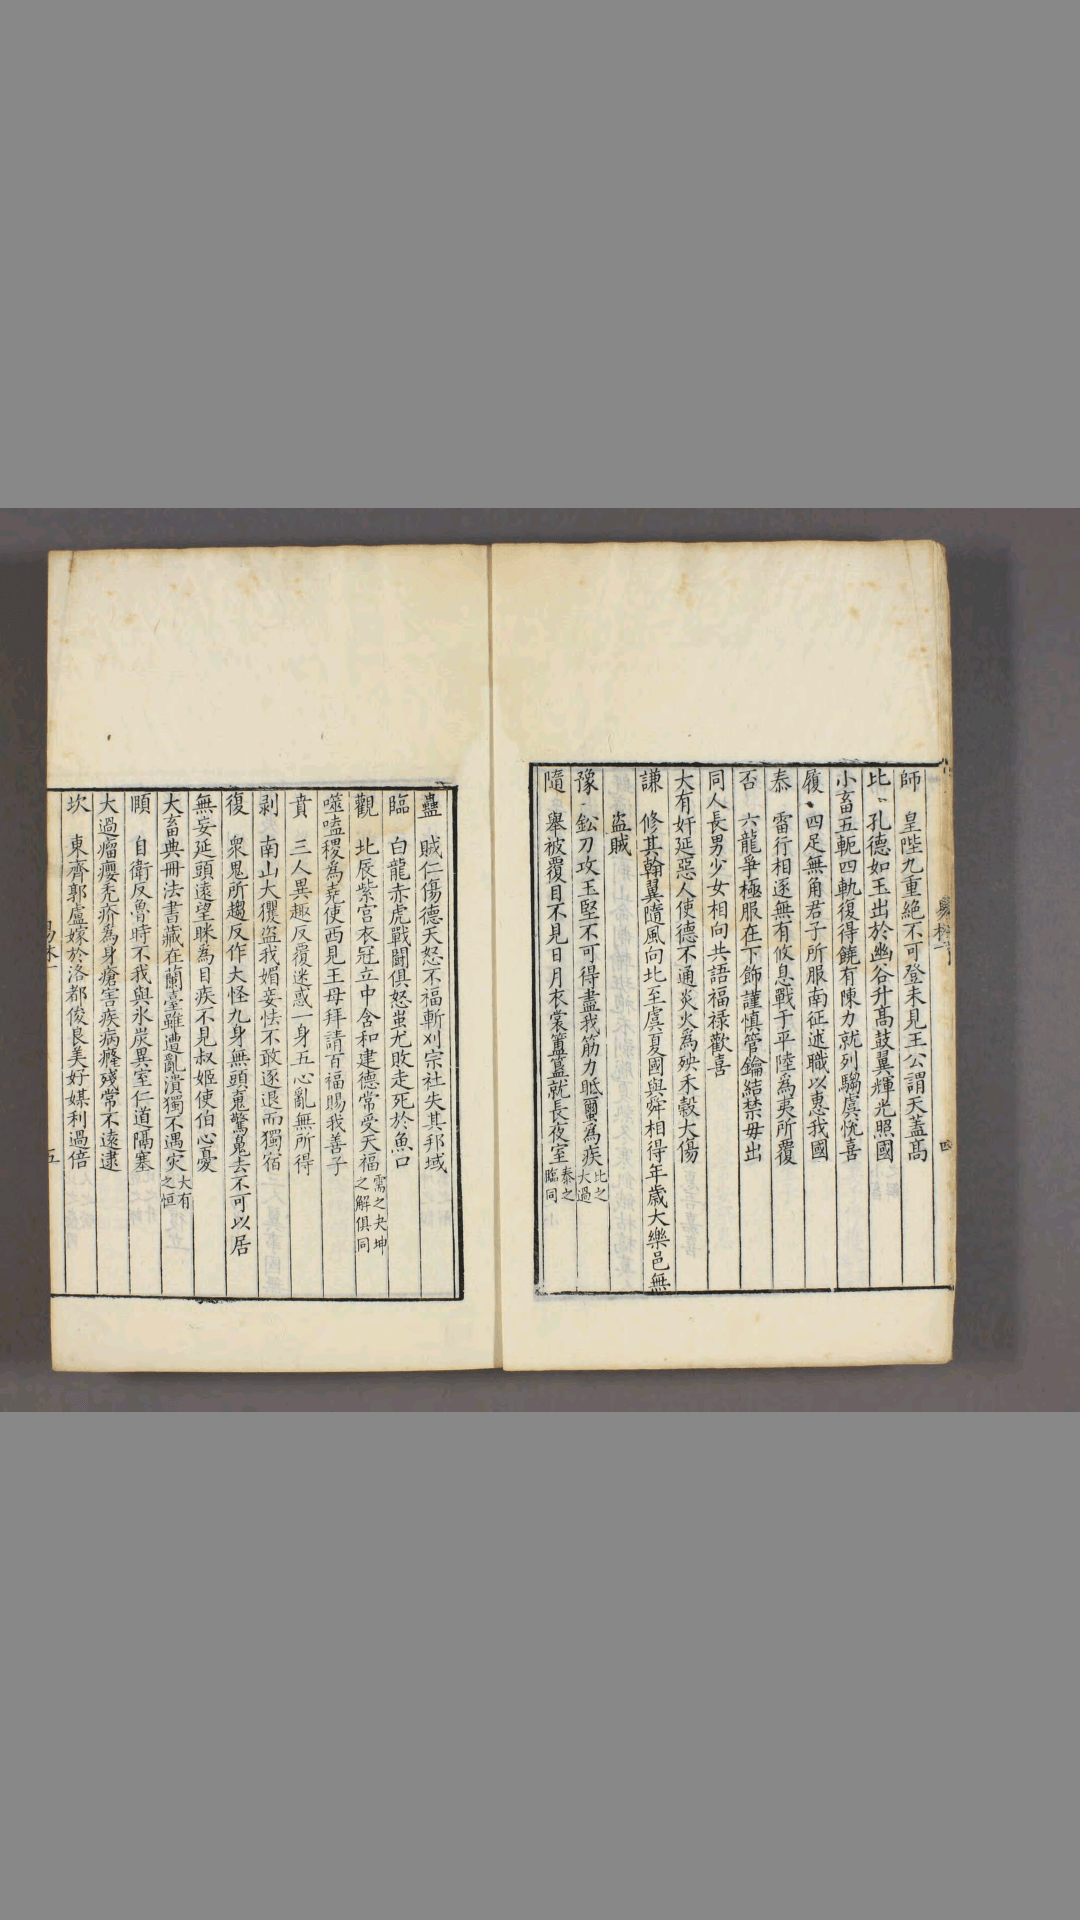 師　皇陛九重絶不可登未見王公謂天蓋高
比　孔德如玉出於幽谷升高鼓翼輝光照國
小畜五軛四軌復得饒有陳力就列騶虞悅喜
履　四足無角君子所服南征述職以惠我國
泰　雷行相逐無有攸息戰于平陸為夷所覆
否　六龍爭極服在下飾謹慎管鑰結禁毋出
同人長男少女相向共語福祿歡喜
大有奸延惡人使德不通炎火為殃禾穀大傷
謙　修其翰翼隨風向北至虞夏國與舜相得年歲大樂邑無
盜賊
豫　鈆刀攻玉堅不可得盡我筋力胝蠒為疾比之大過
隨　舉被覆目不見日月衣裳簠簋就長夜室泰之臨同
蠱　賊仁傷德天怒不福斬刈宗社失其邦域
臨　白龍赤虎戰鬬俱怒蚩尤敗走死於魚口
觀　北辰紫宫衣冠立中含和建德常受天福需之夬坤之解俱同
噬嗑稷為堯使西見王母拜請百福賜我善子
賁　三人異趣反覆迷惑一身五心亂無所得
剥　南山大玃盜我媚妾怯不敢逐退而獨宿
復　衆鬼所趨反作大怪九身無頭䰟驚魄去不可以居
無妄延頭遠望眯為目疾不見叔姬使伯心憂
大畜典冊法書藏在蘭臺雖遭亂潰獨不遇灾大有之恒
頤　自衛反魯時不我與氷炭異室仁道隔塞
大過瘤癭禿疥為身瘡害疾病癃殘常不遠逮
坎　東齊郭盧嫁於洛都俊良美好媒利過倍
五